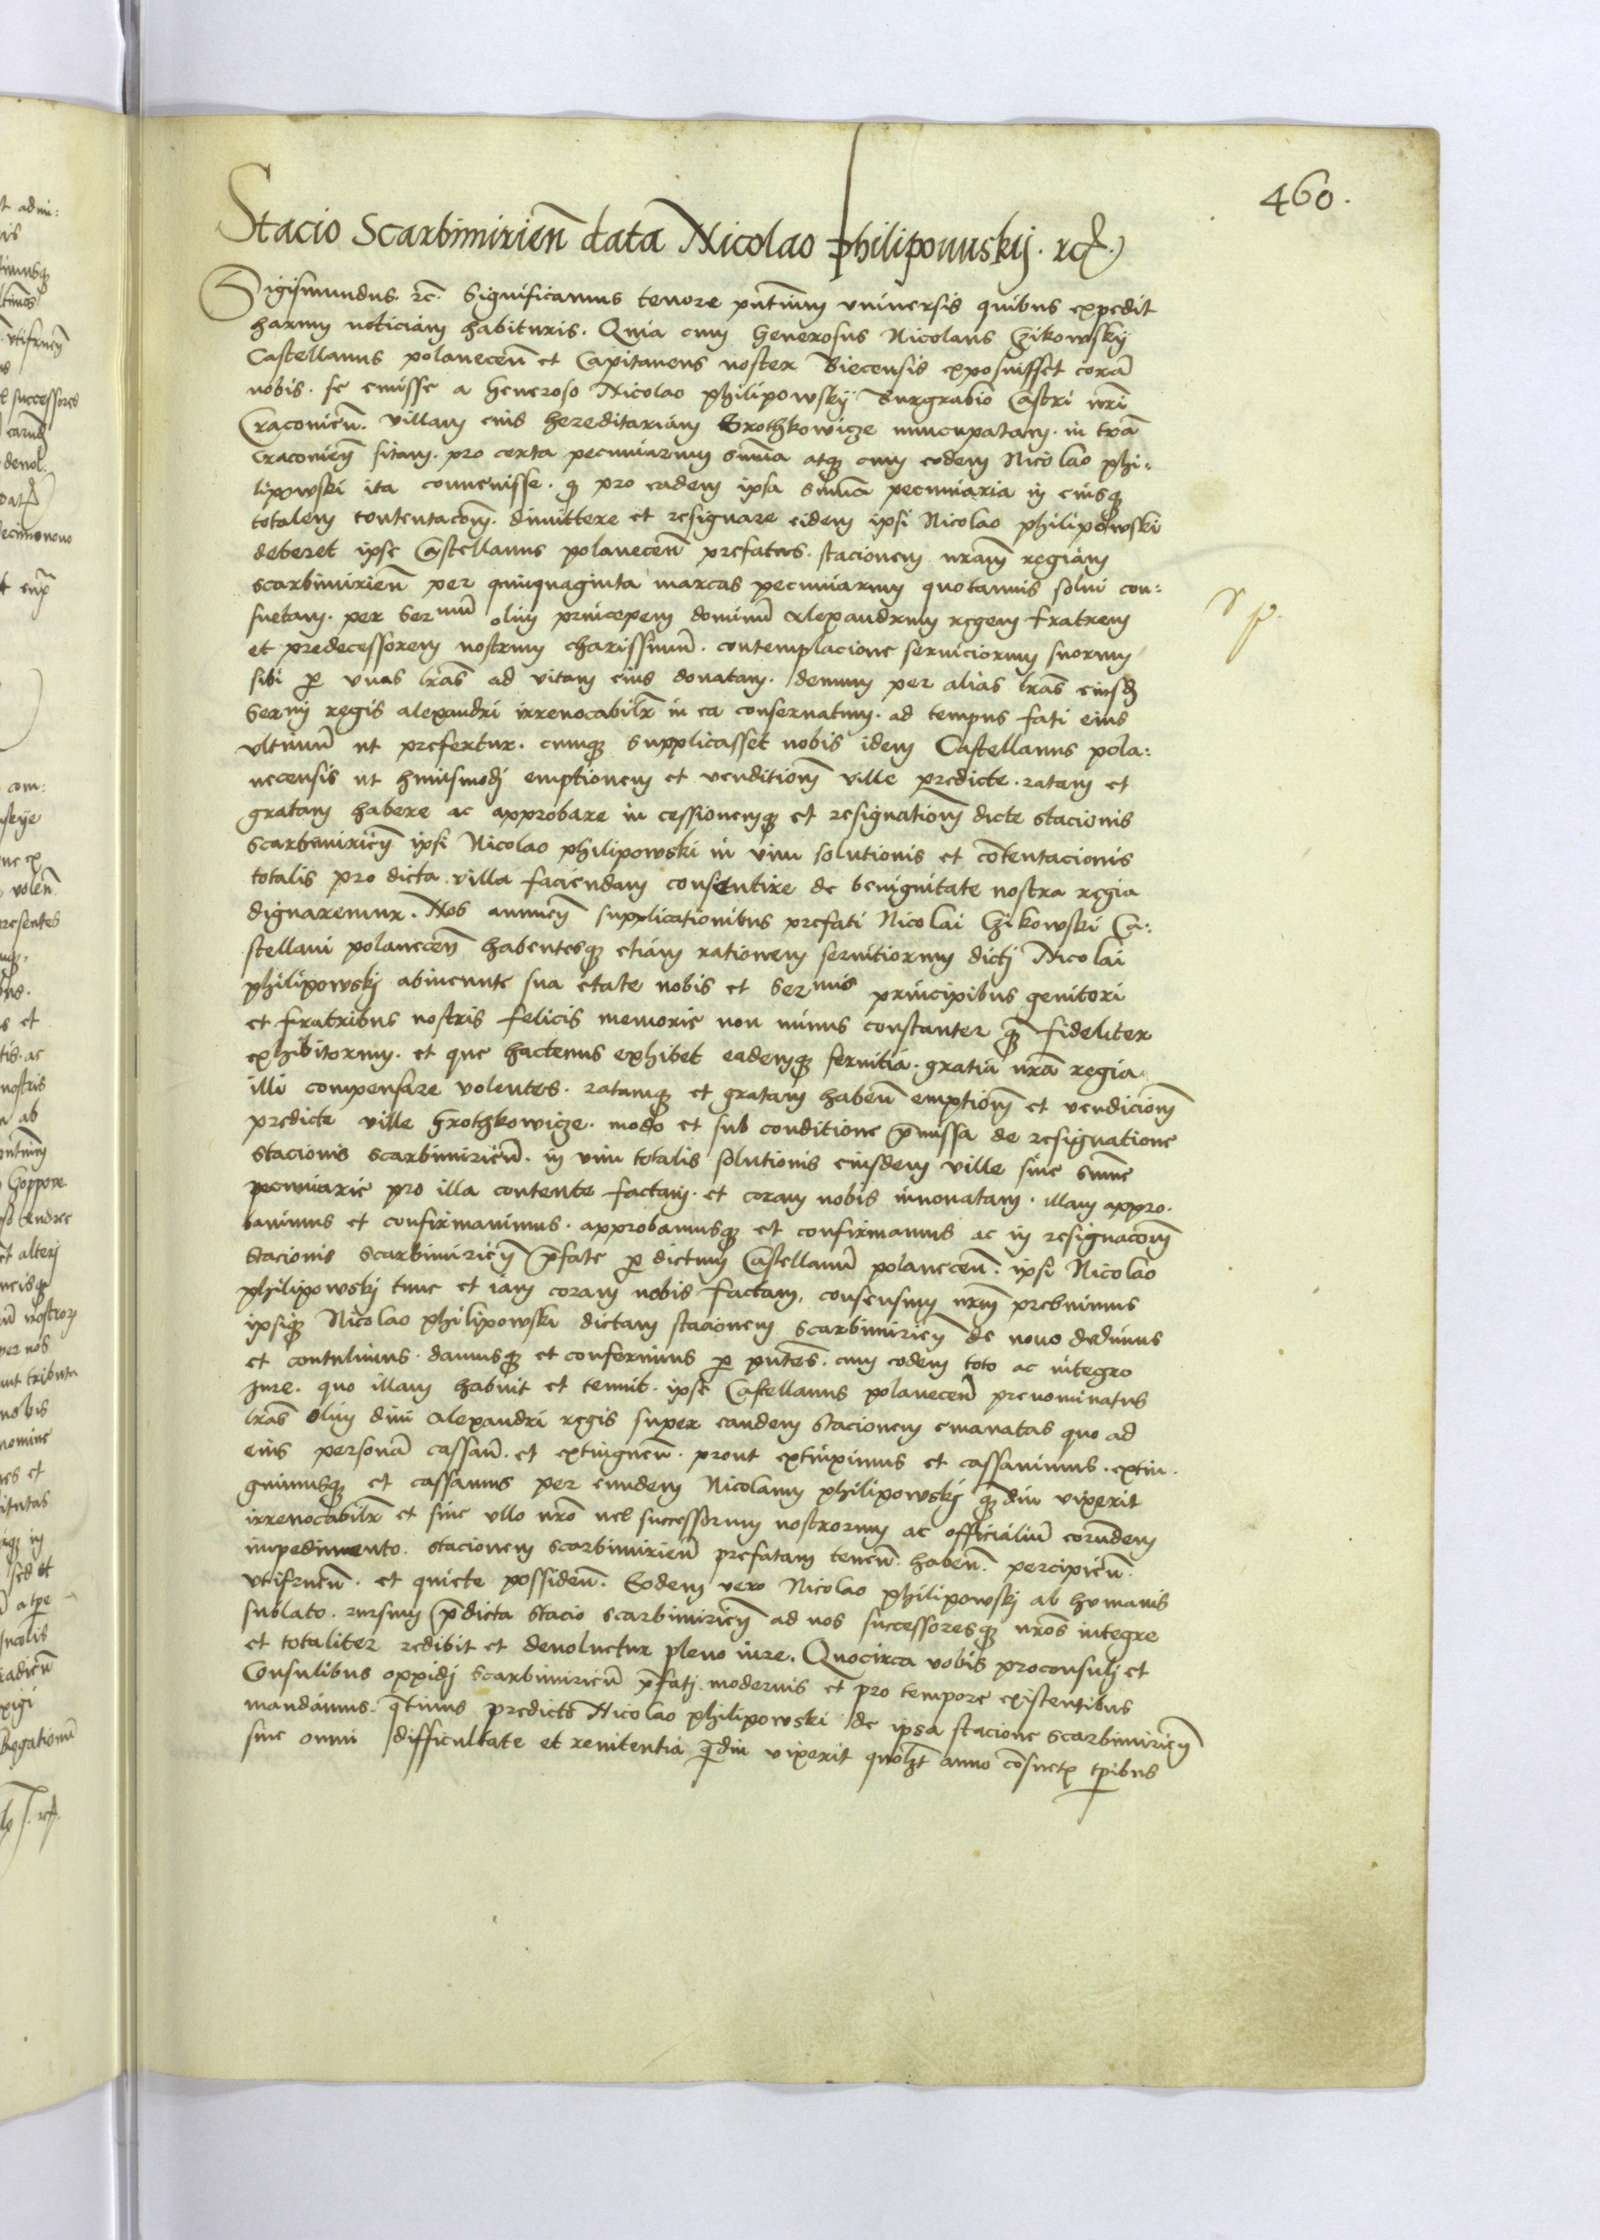 460.
Stacio Scarbimirien̄ data Nicolao Philipouuskij. rc̃.
Sigismundus. rc̃. Significamus tenore pñtium vniuersis quibus expedit
harum noticiam habituris. Quia cum Generosus Nicolaus Czikowsky
Castellanus polanecen̄ et Capitaneus noster Biecensis exposuisset corā
nobis. se emisse a Generoso Nicolao philipowsky Burgrabio Castri nrī
Cracouien̄. villam eius hereditariam Grothkowicze nuncupatam. in trā
Cracouien̄ sitam. pro certa pecuniarum sūma atq cum eodem Nicolao phi-
lipowski ita conuenisse. q pro eadem ipsa sūma pecuniaria in eiusq
totalem contentacōm. dimittere et resignare eidem ipsi Nicolao philipowski
deberet ipse Castellanus polanecen̄ prefatus. stacionem nram regiam
scarbimirien̄ per quinquaginta marcas pecuniarum quotannis solui con-
suetam. per Sermū olim principem dominū Alexandrum regem fratrem
et predecessorem nostrum charissimū. contemplacione seruiciorum suorum
sibi p vnas lrās ad vitam eius donatam. demum per alias lrās eiusd
Sermi regis alexandri irreuocabilr in ea conseruatum. ad tempus fati eius
vltimū ut prefertur. cumq supplicasset nobis idem Castellanus pola-
necensis ut huiusmodi emptionem et venditionm ville predicte. ratam et
gratam habere ac approbare in cessionemq et resignationm dicte stacionis
scarbimirien̄ ipsi Nicolao philipowski in vim solutionis et cōtentacionis
totalis pro dicta villa faciendam consentire de benignitate nostra regia
dignaremur. Nos annuen̄ supplicationibus prefati Nicolai Czikowski Ca-
stellani polanecen̄ habentesq etiam rationem seruitiorum dictj Nicolai
philipowskj abineunte sua etate nobis et Sermis principibus genitori
et fratribus nostris felicis memorie non minus constanter q̄ fideliter
exhibitorum. et que hactenus exhibet eademq seruitia. gratia nrā regia
illi compensare volentes. ratamq et gratam haben̄ emptionm et vendicionm
predicte ville Grothkowicze. modo et sub conditione p̄missa de resignatione
stacionis scarbimirien̄. in vim totalis solutionis eiusdem ville siue sūme
pecuniarie pro illa contente factam. et coram nobis innouatam. illam appro-
bauimus et confirmauimus. approbamusq et confirmamus ac in resignacōm
stacionis scarbimirien̄ p̄fate p dictum Castellanū polanecen̄. ipsi Nicolao
philipowskj tunc et iam coram nobis factam, consensum nrm prebuimus
ipsiq Nicolao philipowski dictam stacionem scarbimirien̄ de nouo dedimus
et contulimus. damusq et conferimus p pn̄tes. cum eodem toto ac integro
Jure. quo illam habuit et tenuit. ipse Castellanus polanecen̄ prenominatus
lrās olim diui Alexandri regis super eandem stacionem emanatas quo ad
eius personā cassan̄. et extinguen̄. prout extinximus et cassauimus. extin-
guimusq et cassamus per eundem Nicolaum philipowskj q̄diu vixerit
irreuocabilr et sine vllo nrō uel successorum nostrorum ac officialiū eorundem
impedimento. stacionem scarbimirien̄ prefatam tenen̄. haben̄. percipien̄.
vtifruen̄. et quiete possiden̄. Eodem vero Nicolao philipowskj ab humanis
sublato. rursum p̄dicta stacio scarbimirien̄ ad nos successoresq nrōs integre
et totaliter redibit et deuoluetur pleno iure. Quocirca vobis proconsulj et
Consulibus oppidj scarbimirien̄ p̄fatj. modernis et pro tempore existentibus
mandamus. q̄tinus predicto Nicolao philipowski de ipsa stacione scarbimirien̄
sine omni difficultate et renitentia q̄diu vixerit quolzt anno cōsuetis tpibus